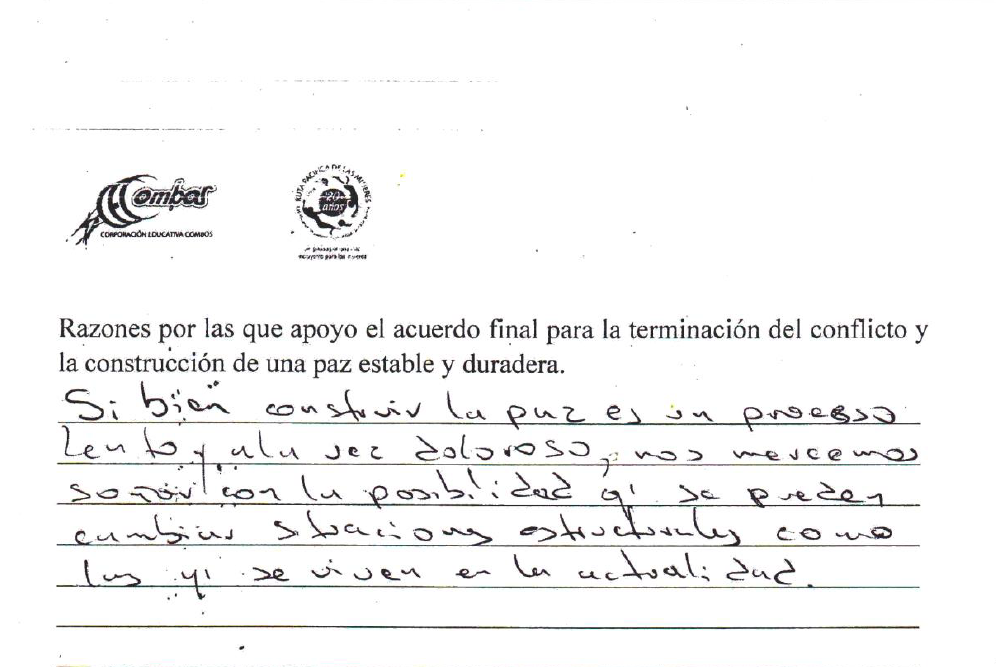 Combos
CORPORACIÓN EDUCATIVA COMBOS
RUTA PACIFICA DE LAS MUJERES
20
años
Razones por las que apoyo el acuerdo final para la terminación del conflicto y
la construcción de una paz estable y duradera.
Si bien construir la paz es un proceso
lento y a la vez doloroso, nos mercemos
soñar con la posibilidad q' se pueden
cambiar situaciones estructurales como
las q' se viven en la actualidad.